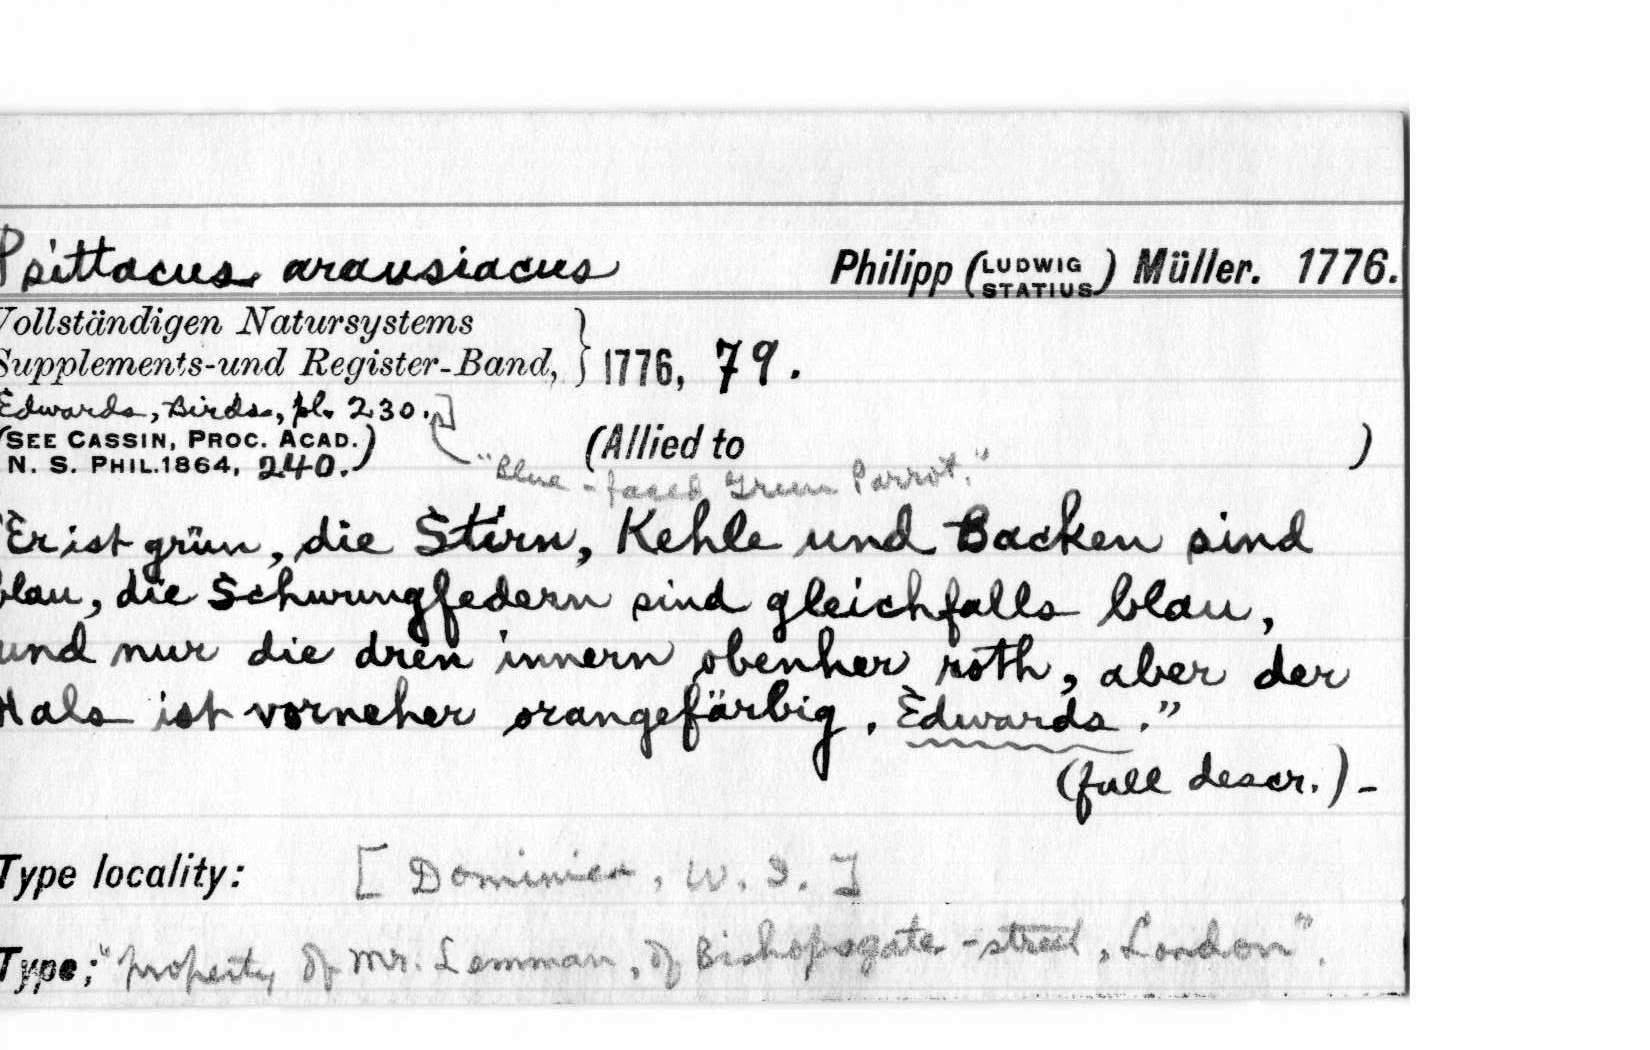 Psittacus arausiacus Philipp (LUDWIG STATIUS) Müller. 1776.
Vollständigen Natursystems
Supplements-und Register-Band, } 1776, 79.
Edwards, Birds, pl. 230.]
(SEE CASSIN, PROC. ACAD. (Allied to )
N. S. PHIL. 1864, 240.)
"Blue-faced Green Parrot."
"Er ist grün, die Stirn, Kehle und Backen sind
blau, die Schwungfedern sind gleichfalls blau,
und nur die dren innern obenher roth, aber der
Hals ist vorneher orangefärbig. Edwards."
(full descr.) -
Type locality: [Dominica, W. I.]
Type; "property of Mr. Lemman, of Bishopsgate-street, London".